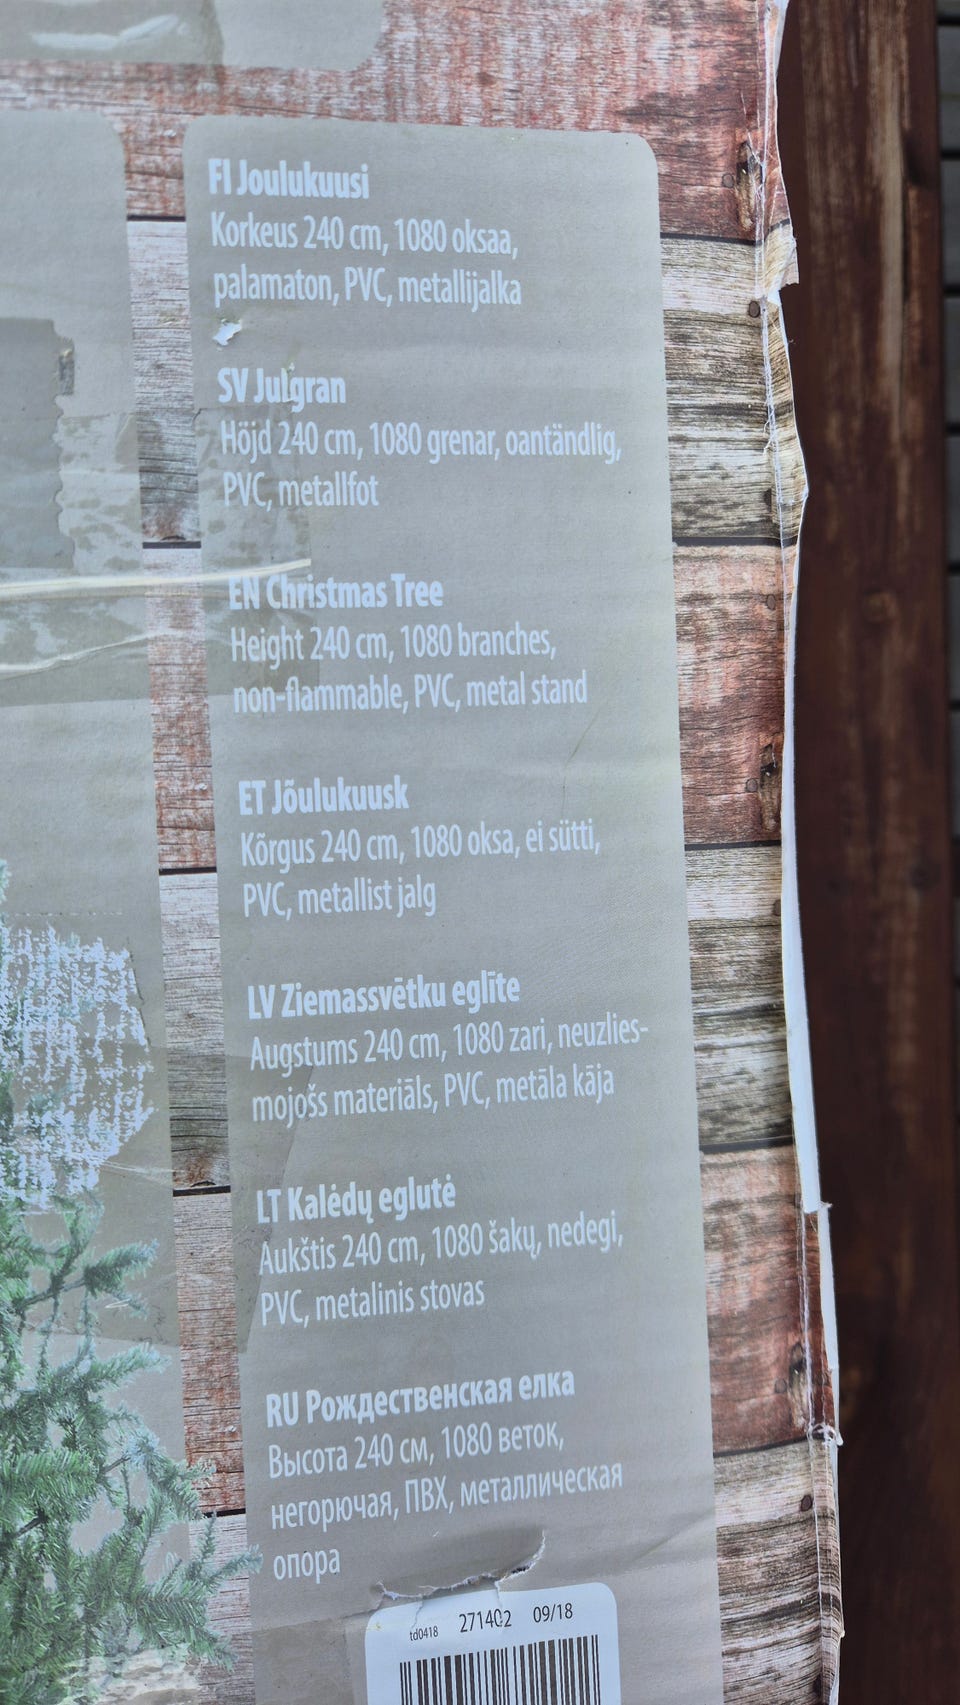 FI Joulukuusi
Korkeus 240 cm, 1080 oksaa,
palamaton, PVC, metallijalka
SV Julgran
Höjd 240 cm, 1080 grenar, oantändlig,
PVC, metallfot
EN Christmas Tree
Height 240 cm, 1080 branches,
non-flammable, PVC, metal stand
ET Jõulukuusk
Kõrgus 240 cm, 1080 oksa, ei sütti,
PVC, metallist jalg
LV Ziemassvētku eglīte
Augstums 240 cm, 1080 zari, neuzlies-
mojošs materiāls, PVC, metāla kāja
LT Kalėdų eglutė
Aukštis 240 cm, 1080 šakų, nedegi,
PVC, metalinis stovas
RU Рождественская елка
Высота 240 см, 1080 веток,
негорючая, ПВХ, металлическая
опора
td0418 271402 09/18